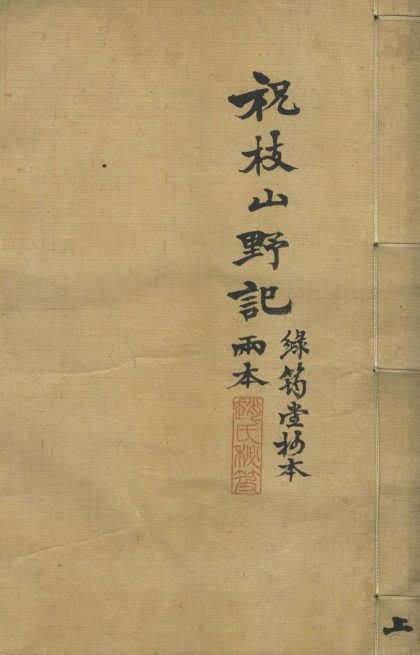 祝枝山野記
兩本
綠筠堂抄本
趙氏秘笈
上